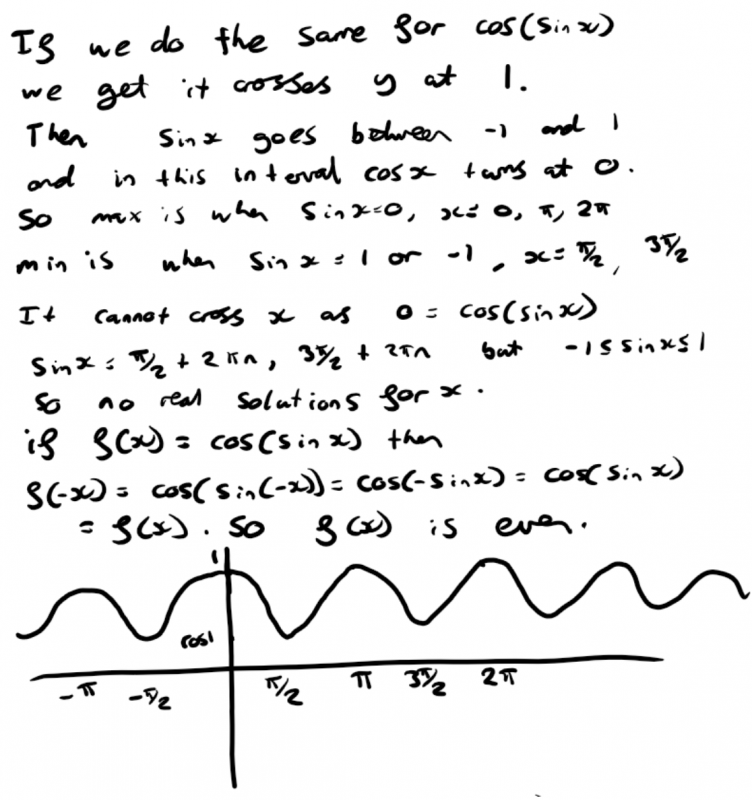 If we do the same for cos(sinx)
we get it crosses y at 1.
Then sinx goes between -1 and 1
and in this interval cosx turns at 0.
So max is when sinx=0, x=0, π, 2π
min is when sinx=1 or -1, x=π/2, 3π/2
It cannot cross x as 0=cos(sinx)
sinx=π/2+2πn, 3π/2+2πn but -1≤sinx≤1
so no real solutions for x.
if f(x)=cos(sinx) then
f(-x)=cos(sin(-x))=cos(-sinx)=cos(sinx)
=f(x). So f(x) is even.
1
cos1
-π -π/2 π/2 π 3π/2 2π